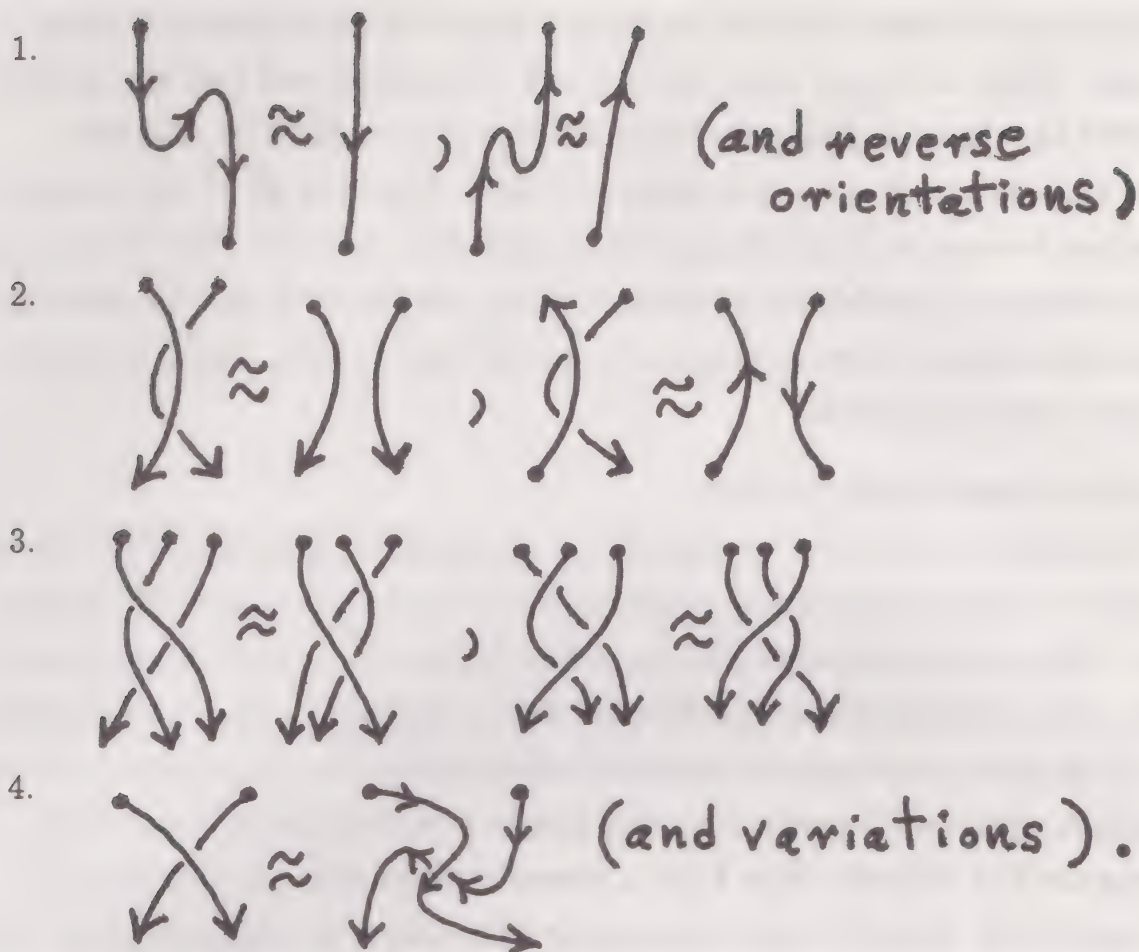 1.
≈ , ≈ (and reverse
orientations)
2.
≈ , ≈
3.
≈ , ≈
4.
≈ (and variations).